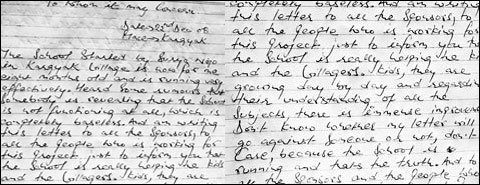 To whom it may concern
Dated 2nd Dec 08
The School Started by Surya
in Kargyak Village is now for me
eight months old and is running very
effectively. Heard Some rumours that
Somebody is revealing that the School
is not functioning at all, which is
completely baseless. And am writing
this letter to all the Sponsors, to
all the people who is working for
this project, just to inform you that
the School is really helping the kids
and the Villagers. Kids, they are
completely baseless. And am writing
this letter to all the Sponsors, to
all the people who is working for
this project, just to inform you tha
the School is really helping the kid
and the Villagers. Kids, they are
growing day by day and regardi
their understanding of all the
Subjects, there is immense improve
Don't know whether my letter will
go against Someone or not, don't
Care, because the School is
running and thats the truth. And to
all the Sponsors and the people who